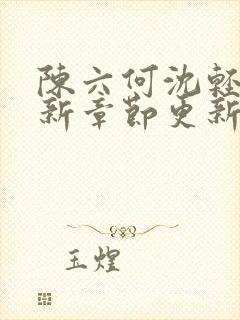 陳六何沈輕
新章節更新
玉煌